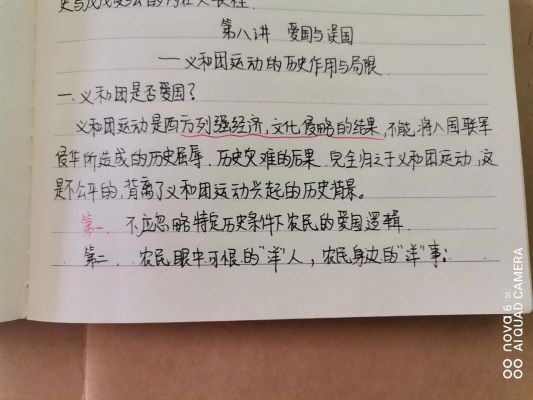 第八讲 爱国与误国
一义和团运动的历史作用与局限
一.义和团是否爱国?
义和团运动是西方列强经济,文化侵略的结果,不能将八国联军
侵华所造成的历史屈辱、历史灾难的后果,完全归之于义和团运动,这
是不公平的,背离了义和团运动兴起的历史背景。
第一、不应忽略特定历史条件下农民的爱国逻辑.
第二、农民眼中可恨的"洋"人,农民身边的"洋"事:
nova 6 SE
AI QUAD CAMERA